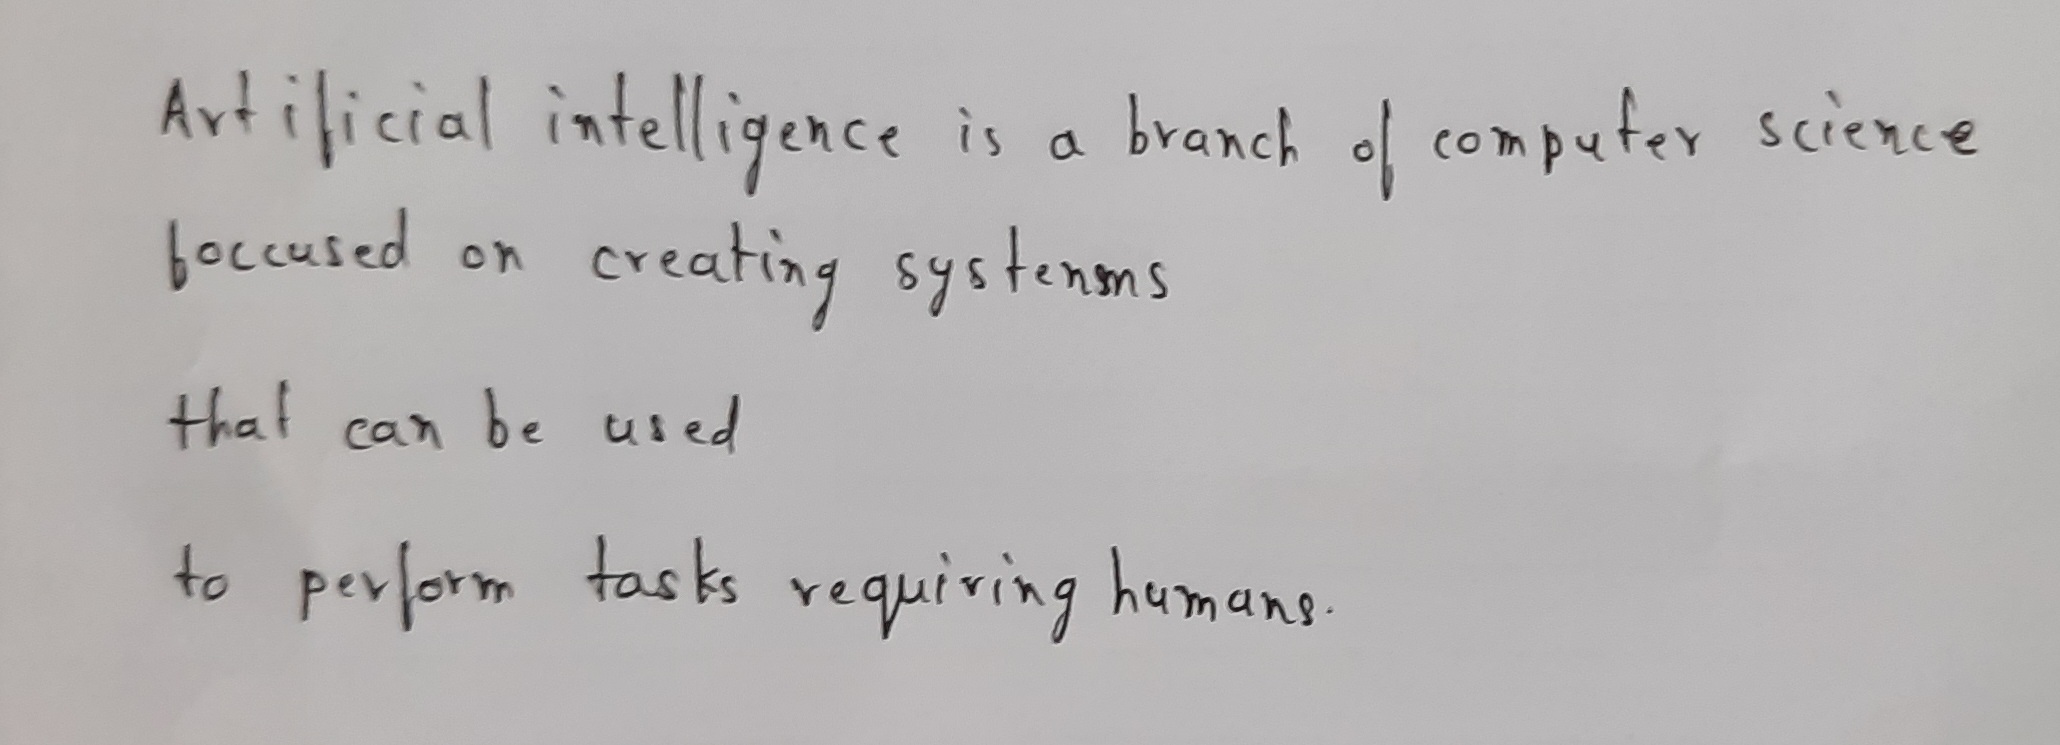 Artificial intelligence is a branch of computer science
foccused on creating systenms
that can be used
to perform tasks requiring humans.